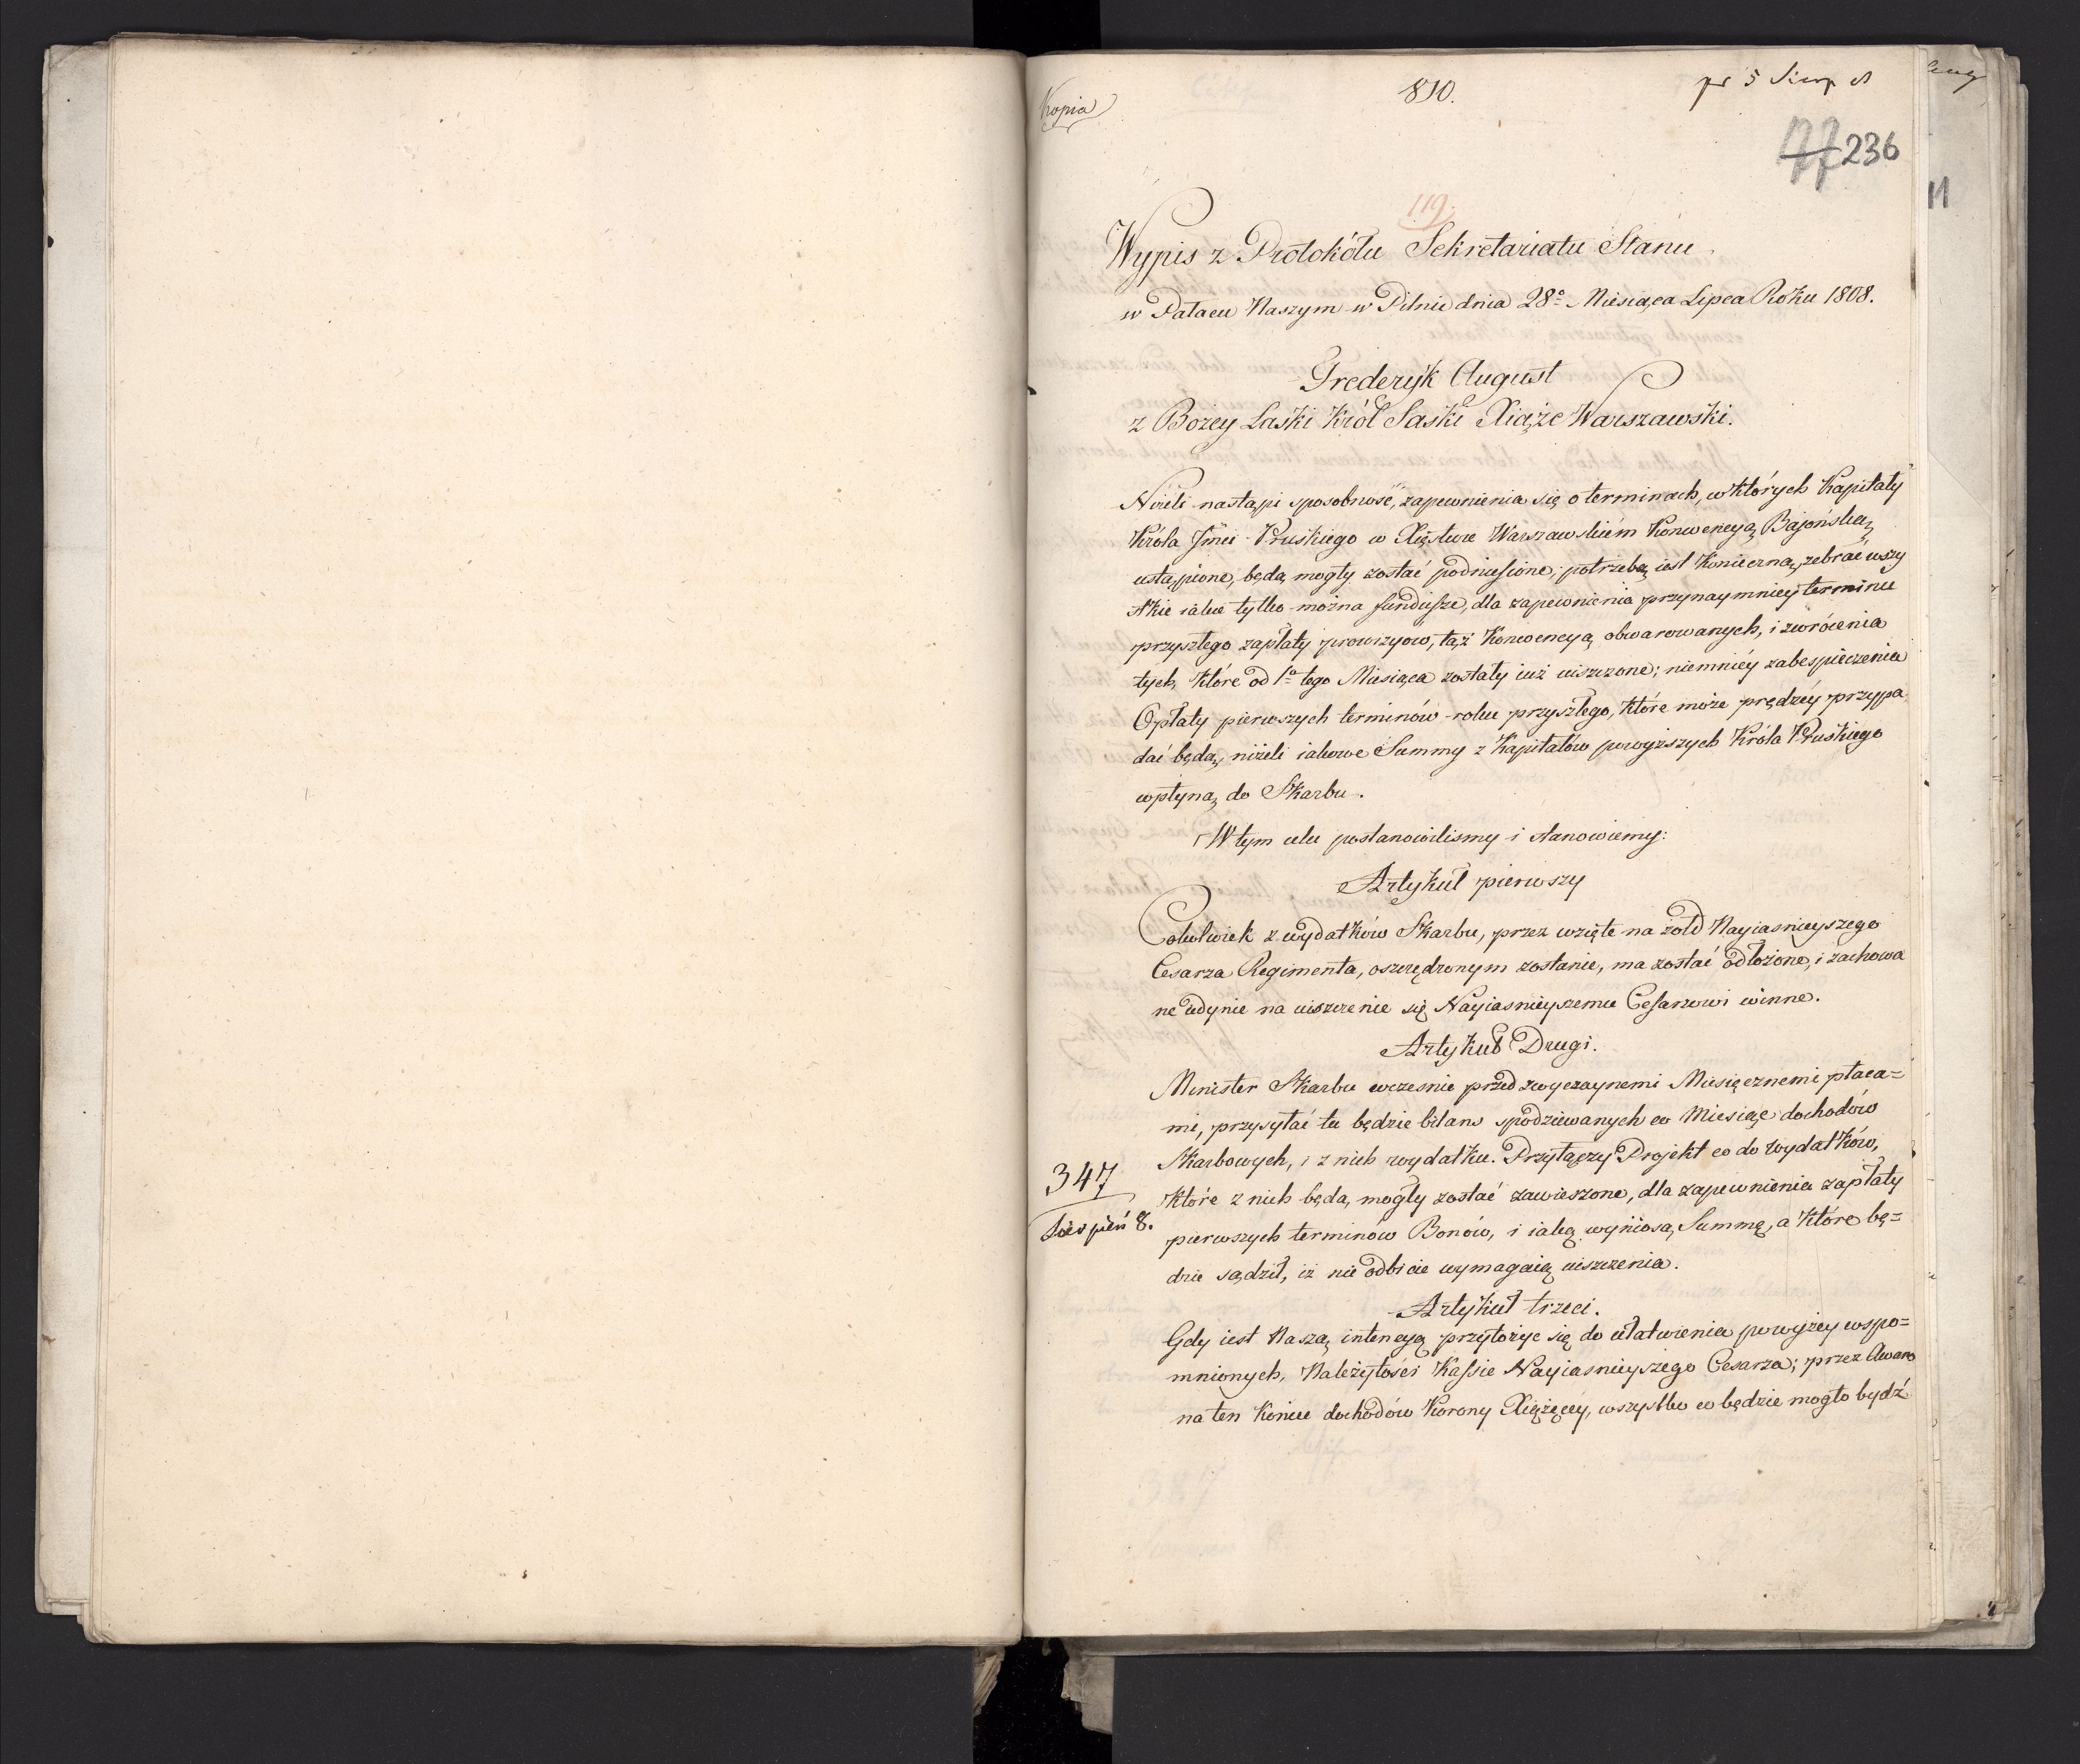 Kopia
810.
pr 5 Sierp
77 236
119.
Wypis z Protokółu Sekretariatu Stanu
w Pałacu Naszym w Pilnie dnia 28o Miesiąca Lipca Roku 1808.
Frederyk August
z Bożey Łaski Król Saski Xiąże Warszawski.
Niżeli nastąpi sposobność, zapewnienia się o terminach, w których Kapitały
Króla Jmci Pruskiego w Xięstwie Warszawskiém Konwencyą Bajońską
ustąpione, będą mogły zostać podniesione; potrzebą iest konieczną, zebrać wszy
stkie iakie tylko można fundusze, dla zapewnienia przynaymniey terminu
przyszłego zapłaty prowizyow, tąż Konwencyą obwarowanych, i zwrócenia
tych, które od 1o tego Miesiąca zostały iuż uiszczone; niemniéy zabespieczenia
Opłaty pierwszych terminów roku przyszłego, które może prędzéy przypa
dać będą, niżeli iakowe Summy z Kapitałów powyższych Króla Pruskiego
wpłyną do Skarbu.
W tym celu postanowilismy i stanowiemy:
Artykuł pierwszy
Cokolwiek z wydatków Skarbu, przez wzięte na żołd Nayiasnieyszego
Cesarza Regimenta, oszczędzonym zostanie, ma zostać odłożone, i zachowa
ne iedynie na uiszczenie się Nayiasnieyszemu Cesarzowi winne.
Artykuł Drugi.
Minister Skarbu wczesnie przed zwyczaynemi Miesięcznemi płaca=
mi, przysyłać tu będzie bilans spodziewanych co Miesiąc dochodów
Skarbowych, i z nich wydatku. Przyłączy Projekt co do wydatków,
które z nich będą mogły zostać zawieszone, dla zapewnienia zapłaty
pierwszych terminów Bonów, i iaką wyniosą Summę, a które bę=
dzie sądził, iż nieodbicie wymagaią uiszczenia.
347
Sierpień 8.
Artykuł trzeci.
Gdy iest Naszą intencyą przyłożyc się do ułatwienia powyżey wspo=
mnionych, Należytości Kassie Nayiasnieyszego Cesarza; przez
na ten koniec dochodów Korony Xiążęcéy, wszystko co będzie mogło bydź